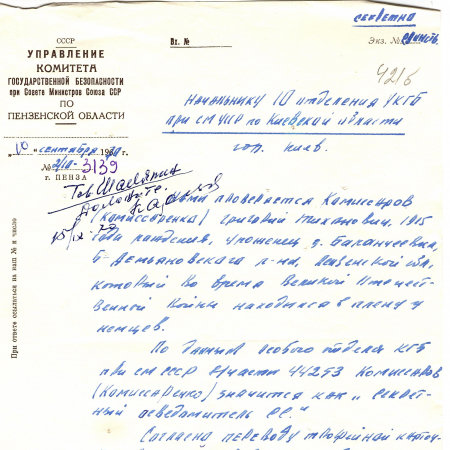 секретно
Экз. № единств.
СССР
УПРАВЛЕНИЕ
КОМИТЕТА
ГОСУДАРСТВЕННОЙ БЕЗОПАСНОСТИ
при Совете Министров Союза ССР
ПО
ПЕНЗЕНСКОЙ ОБЛАСТИ
Вх. №
4216
„10“ сентября
№ 2/10-3139
г. ПЕНЗА
Начальнику 10 отделения УКГБ
при СМ УССР по Киевской области
гор. Киев.
Тов.
15/IX
При ответе ссылаться на наш № и число
Нами проверяется Комиссаров
(Комиссаренко) Григорий Михайлович, 1915
года рождения, уроженец д. Баланчеевка,
Б-Демьяновского р-на, Пензенской обл.,
который во время Великой Отечест-
венной войны находился в плену у
немцев.
По данным особого отдела КГБ
при СМ СССР в/части 44253 Комиссаров
(Комиссаренко) значится как „секрет-
ный осведомитель СС".
Согласно переводу трофейной карточ-